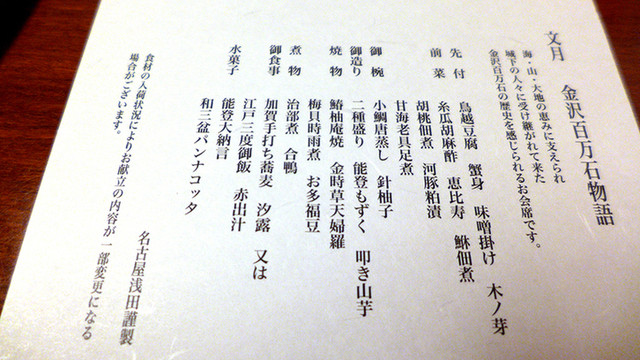 文月　金沢百万石物語
海・山・大地の恵みに支えられ
城下の人々に受け継がれて来た
金沢百万石の歴史を感じられるお会席です。
先付　鳥越豆腐　蟹身　味噌掛け　木ノ芽
前菜　糸瓜胡麻酢　恵比寿　鮴佃煮
胡桃佃煮　河豚粕漬
甘海老具足煮
御椀　小鯛唐蒸し　針柚子
御造り　二種盛り　能登もずく　叩き山芋
焼物　鰆柚庵焼　金時草天婦羅
梅貝時雨煮　お多福豆
煮物　治部煮　合鴨
御食事　加賀手打ち蕎麦　汐露　又は
江戸三度御飯　赤出汁
水菓子　能登大納言
和三盆パンナコッタ
食材の入荷状況によりお献立の内容が一部変更になる
場合がございます。
名古屋浅田謹製